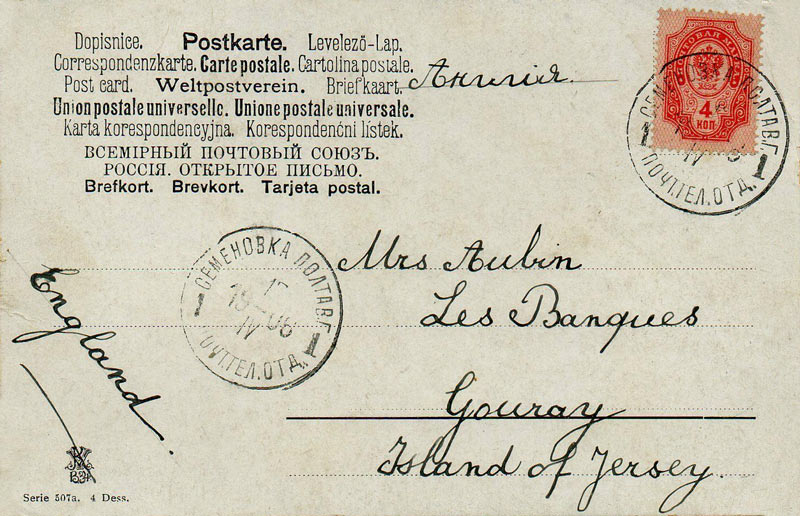 Dopisnice. Postkarte. Levelező-Lap.
Correspondenzkarte. Carte postale. Cartolina postale.
Post card. Weltpostverein. Briefkaart.
Union postale universelle. Unione postale universale.
Karta korespondencyjna. Korespondenční lístek.
ВСЕМІРНЫЙ ПОЧТОВЫЙ СОЮЗЪ.
РОССІЯ. ОТКРЫТОЕ ПИСЬМО.
Brefkort. Brevkort. Tarjeta postal.
Англія
ПОЧТОВАЯ МАРКА
4
КОП
СЕМЕНОВКА ПОЛТАВ.Г.
1 1
IV
ПОЧ.ТЕЛ.ОТД.
СЕМЕНОВКА ПОЛТАВ.Г.
1 15-06 1
IV
ПОЧ.ТЕЛ.ОТД.
Mrs Aubin
Les Banques
Gouray
Island of Jersey.
England.
Serie 507a. 4 Dess.